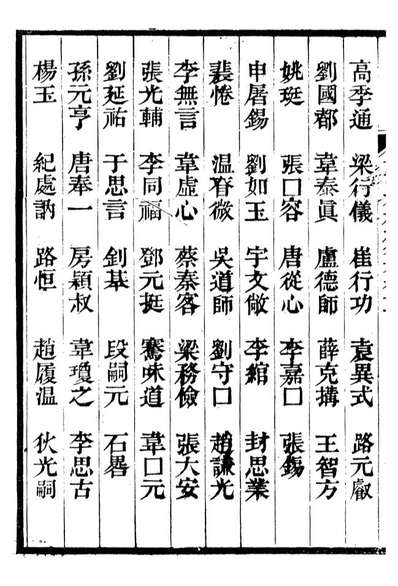 高季通 梁行儀 崔行功 袁異式 路元叡
劉國都 韋泰眞 盧德師 薛克搆 王智方
姚珽 張口容 唐從心 李嘉口 張錫
申屠錫 劉如玉 宇文儆 李綰 封思業
裴惓 温眘微 吳道師 劉守口 趙謙光
李無言 韋虛心 蔡秦客 梁務儉 張大安
張光輔 李同福 鄧元挺 騫味道 韋口元
劉延祐 于思言 劉基 段嗣元 石晷
孫元亨 唐奉一 房穎叔 韋瓊之 李思古
楊玉 紀處訥 路恒 趙履溫 狄光嗣